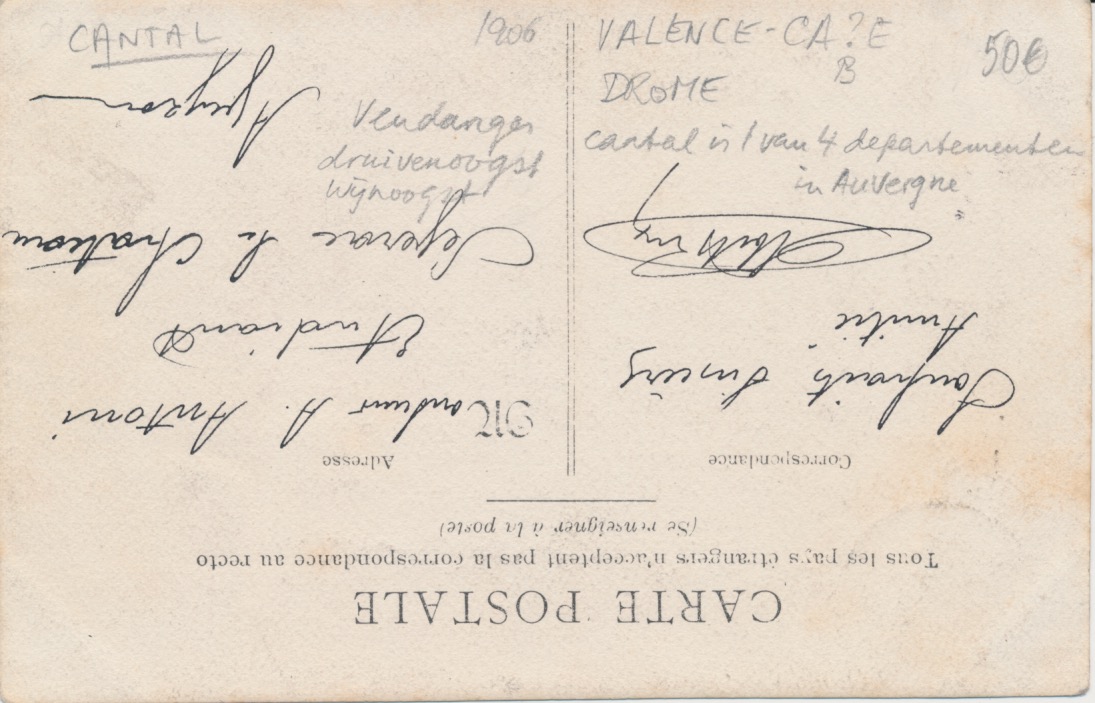 CANTAL
1906
VALENCE-CA?E
B
50€
DROME
Vendanges
druivenoogst
wijnoogst
cantal is 1 van 4 departementen
in Auvergne
CARTE POSTALE
Tous les pays étrangers n'acceptent pas la correspondance au recto
(Se renseigner à la poste)
Correspondance
Adresse
Sincère
Amitié
M onsieur A. Antoni
Etudiant
Séverac le Château
Aveyron